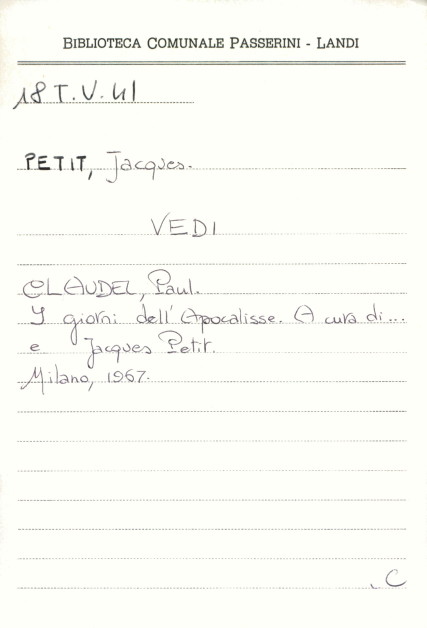 BIBLIOTECA COMUNALE PASSERINI - LANDI
18 T.V.41
PETIT, Jacques.
VEDI
CLAUDEL, Paul.
I giorni dell'Apocalisse. A cura di...
e Jacques Petit.
Milano, 1967.
C